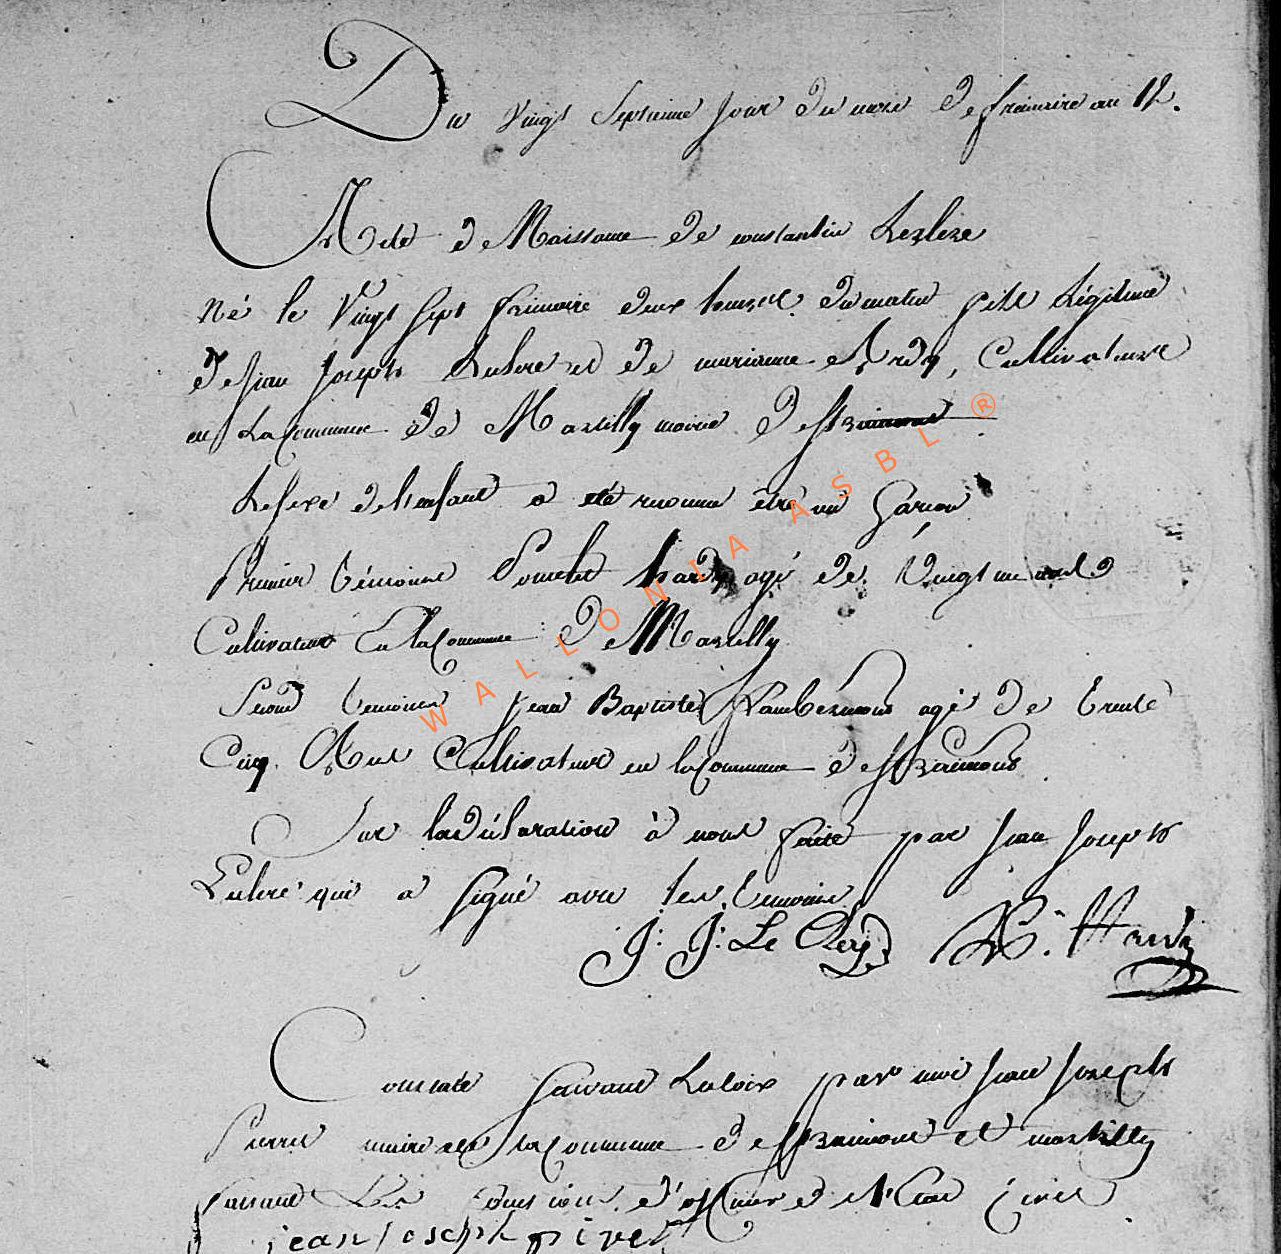 Du vingt Septieme jour du mois de frimaire an 12.
Acte de Naissance de constantin Leclere
Né le Vingt Sept frimaire deux heures du matin fils Légitime
de jean joseph Leclere et de marianne Ardy, Cultivateurs
en La Commune de Martilly mairie de straimont
Le sexe de l'enfant a été reconnu être un Garçon
Premier témoins hardy agé de Vingt un
Cultivateur en la Commune de Martilly
Second temoins jean Baptiste Lambermont agé de trente
Cinq Ans Cultivateur en la Commune de straimont
Sur la déclaration à nous faite par jean joseph
Leclere qui a signé avec les temoins
J: J: Le Clere Hardy
Constaté suivant La loix par moi jean joseph
Pierret maire de la Commune de straimont et martilly
faisant Les fonctions d'officier de l'Etat Civil
jean joseph pierret
WALLONIA ASBL ®